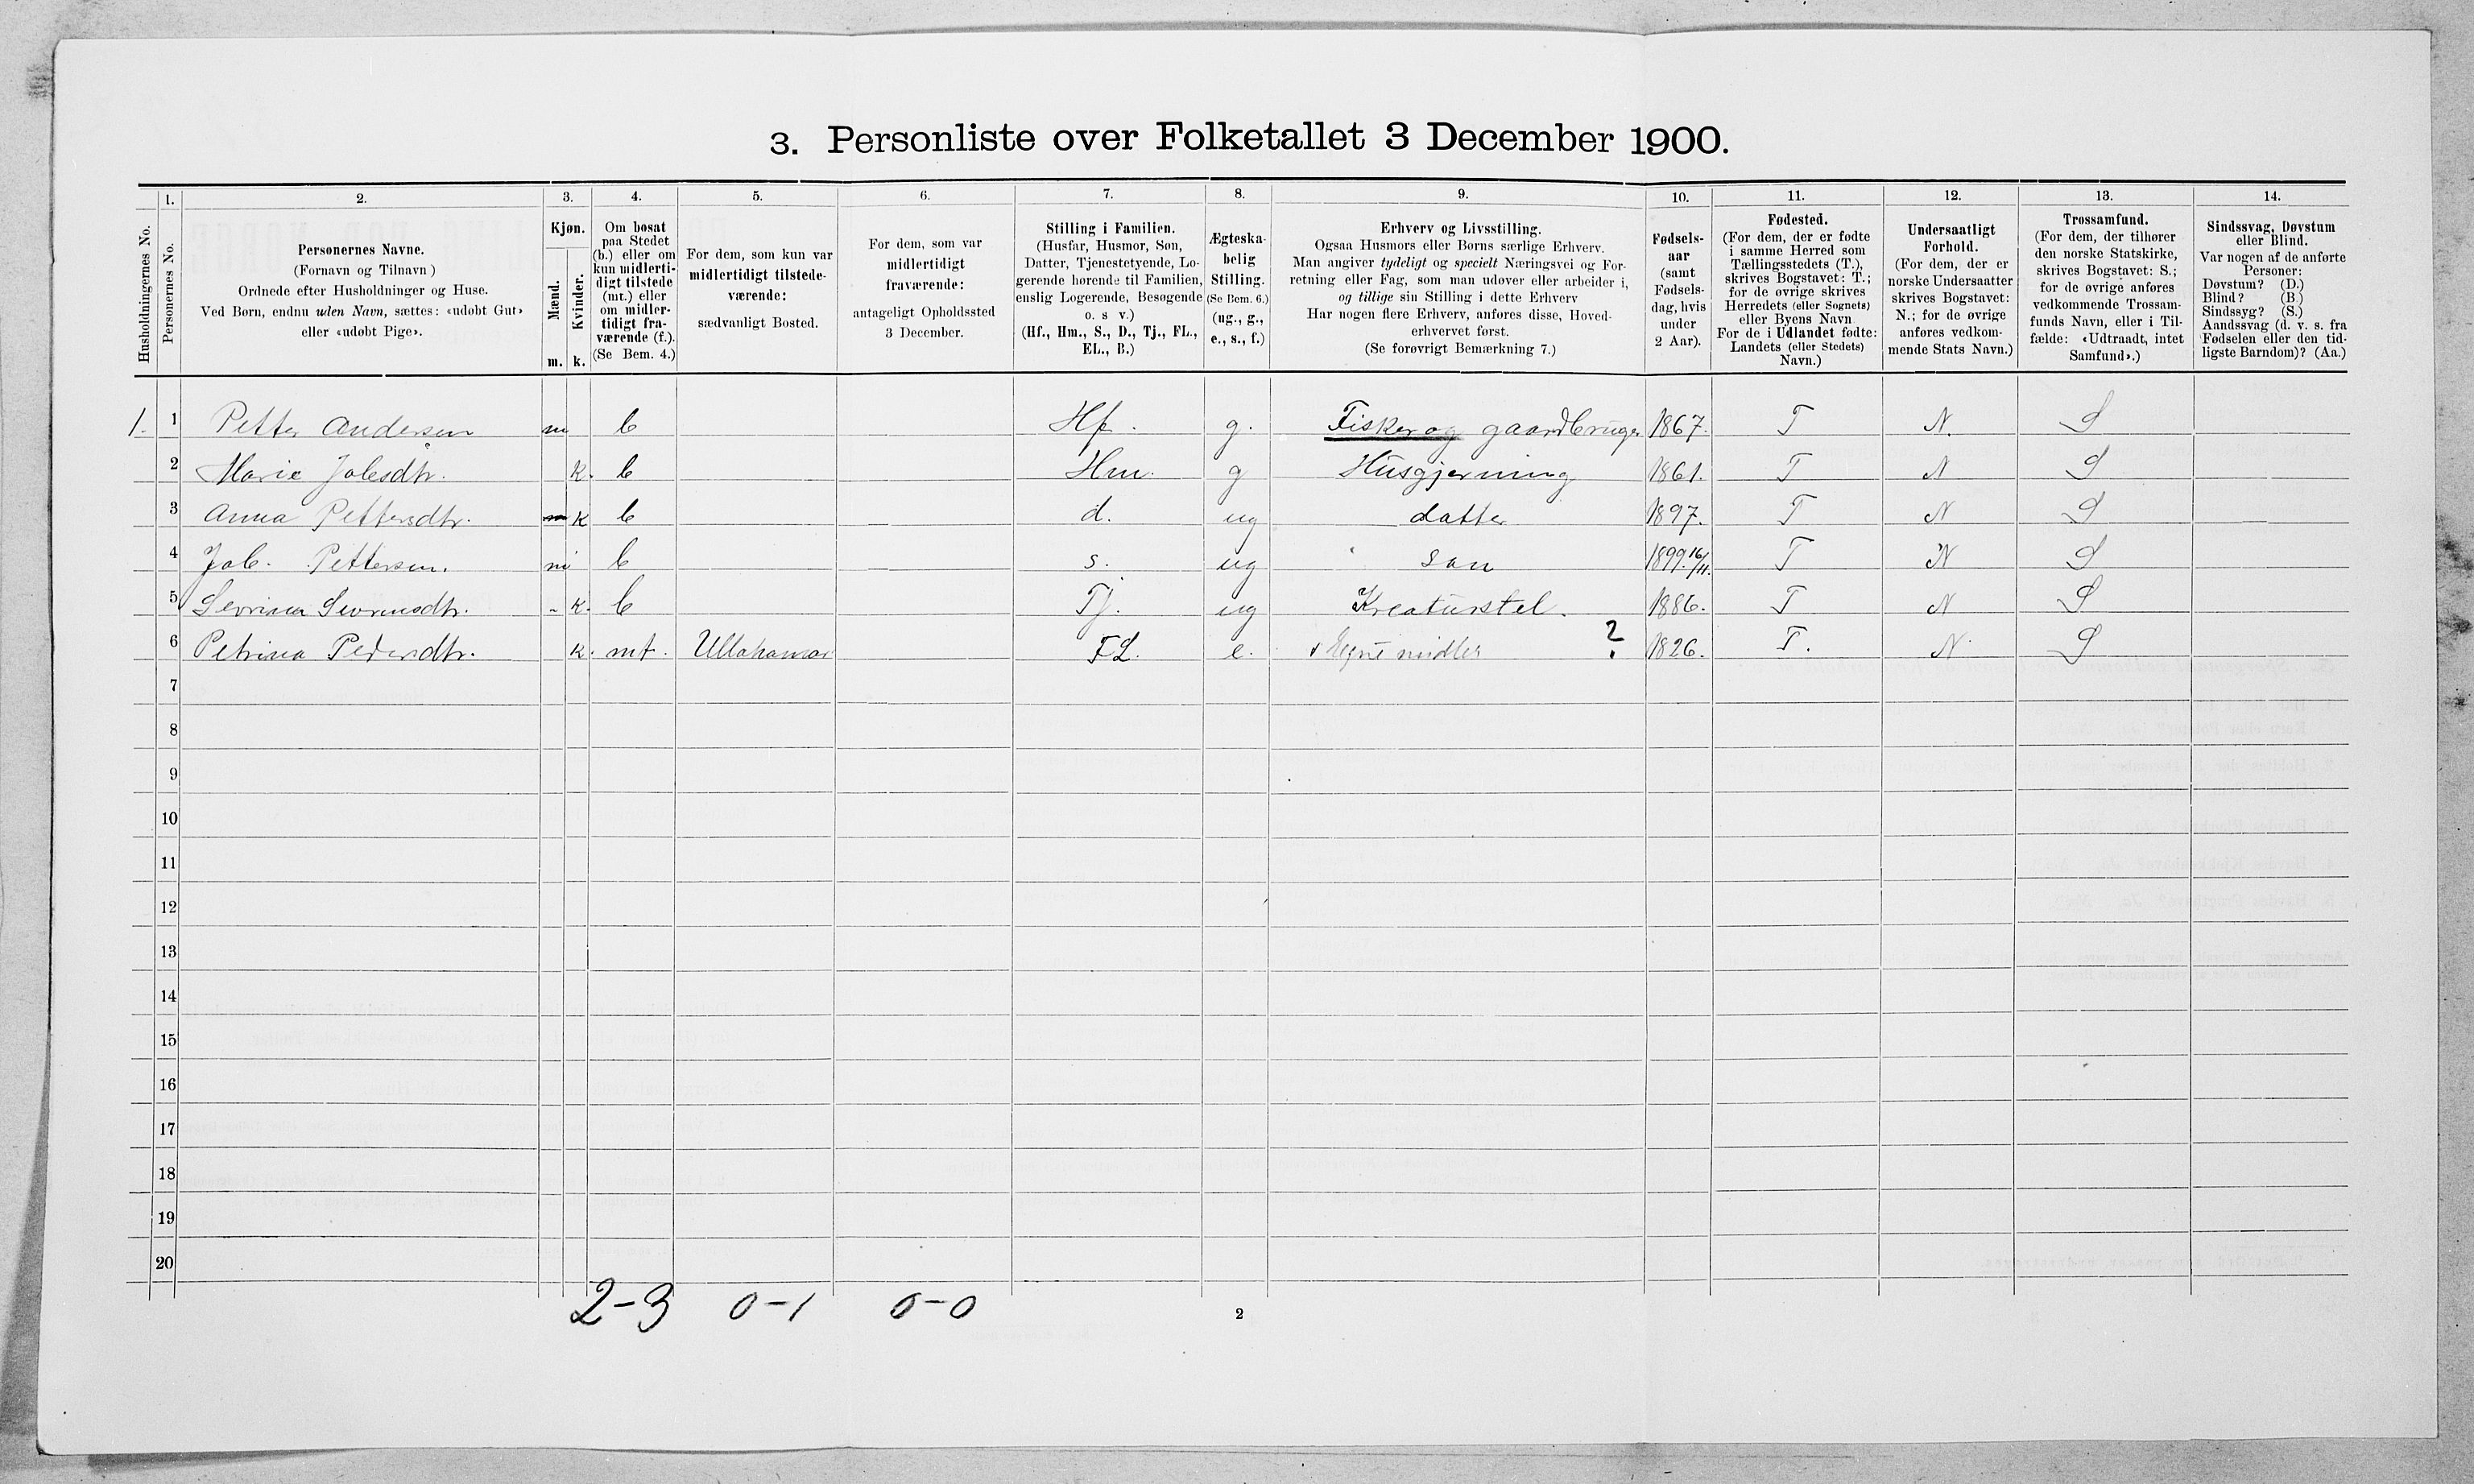 3. Personliste over Folketallet 3 December 1900.
Husholdningernes No.
1.
Personernes No.
2.
Personernes Navne.
(Fornavn og Tilnavn)
Ordnede efter Husholdninger og Huse.
Ved Børn, endnu uden Navn, sættes: «udøbt Gut»
eller «udøbt Pige».
3.
Kjøn.
Mænd.
Kvinder.
m. k.
4.
Om bosat
paa Stedet
(b.) eller om
kun midlerti-
digt tilstede
(mt.) eller
om midler-
tidigt fra-
værende (f.).
(Se Bem. 4.)
5.
For dem, som kun var
midlertidigt tilstede-
værende:
sædvanligt Bosted.
6.
For dem, som var
midlertidigt
fraværende:
antageligt Opholdssted
3 December.
7.
Stilling i Familien.
(Husfar, Husmor, Søn,
Datter, Tjenestetyende, Lo-
gerende hørende til Familien,
enslig Logerende, Besøgende
o. s v.)
(Hf., Hm., S., D., Tj., FL.,
EL., B.)
8.
Ægteska-
belig
Stilling.
(Se Bem. 6.)
(ug., g.,
e., s., f.)
9.
Erhverv og Livsstilling.
Ogsaa Husmors eller Børns særlige Erhverv.
Man angiver tydeligt og specielt Næringsvei og For-
retning eller Fag, som man udøver eller arbeider i,
og tillige sin Stilling i dette Erhverv
Har nogen flere Erhverv, anføres disse, Hoved-
erhvervet først.
(Se forøvrigt Bemærkning 7.)
10.
Fødsels-
aar
(samt
Fødsels-
dag, hvis
under
2 Aar).
11.
Fødested.
(For dem, der er fødte
i samme Herred som
Tællingsstedets (T.),
skrives Bogstavet: T.;
for de øvrige skrives
Herredets (eller Sognets)
eller Byens Navn
For de i Udlandet fødte:
Landets (eller Stedets)
Navn.)
12.
Undersaatligt
Forhold.
(For dem, der er
norske Undersaatter
skrives Bogstavet:
N.; for de øvrige
anføres vedkom-
mende Stats Navn.)
13.
Trossamfund.
(For dem, der tilhører
den norske Statskirke,
skrives Bogstavet: S.;
for de øvrige anføres
vedkommende Trossam-
funds Navn, eller i Til-
fælde: «Udtraadt, intet
Samfund».)
14.
Sindssvag, Døvstum
eller Blind.
Var nogen af de anførte
Personer:
Døvstum? (D.)
Blind? (B)
Sindssyg? (S.)
Aandssvag (d. v. s. fra
Fødselen eller den tid-
ligste Barndom)? (Aa.)
1. 1 Petter Andersen m b Hf. g. Fisker og gaardbruger 1867. T N. S
2 Marie Jobsdtr. k. b Hm. g Husgjerning 1861. T N S
3 Anna Pettersdtr. m k b d. ug datter 1897. T N S
4 Job. Pettersen. m b s. ug søn 1899. 16/11. T N S
5 Sevrina Sevrinsdtr. - k. b Tj. ug Kreaturstel. 1886. T N S
6 Petrina Pedersdtr. k. mt. Ullahamar FL. e. Egne midler ? 1826. T. N. S
7
8
9
10
11
12
13
14
15
16
17
18
19
20
2-3 0-1 0-0
2